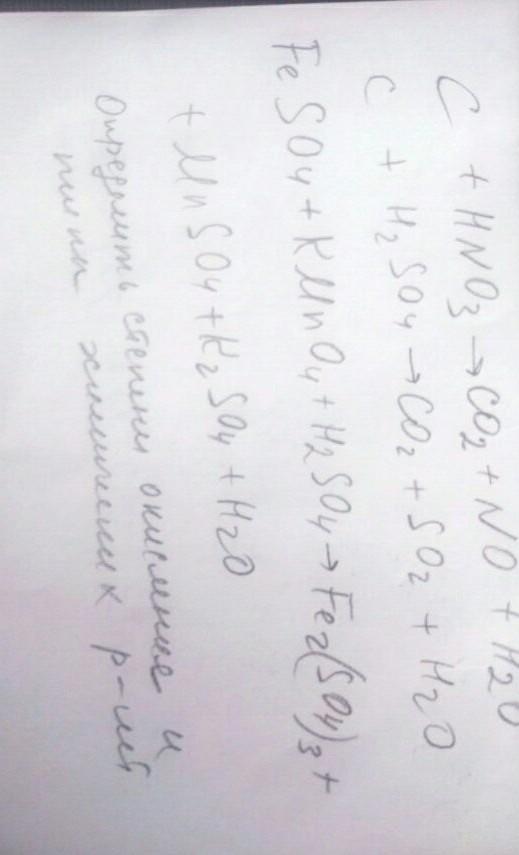 C + HNO₃ → CO₂ + NO + H₂O
C + H₂SO₄ → CO₂ + SO₂ + H₂O
FeSO₄ + KMnO₄ + H₂SO₄ → Fe₂(SO₄)₃ +
+ MnSO₄ + K₂SO₄ + H₂O
Определить степени окисления и
типы химических р-ций